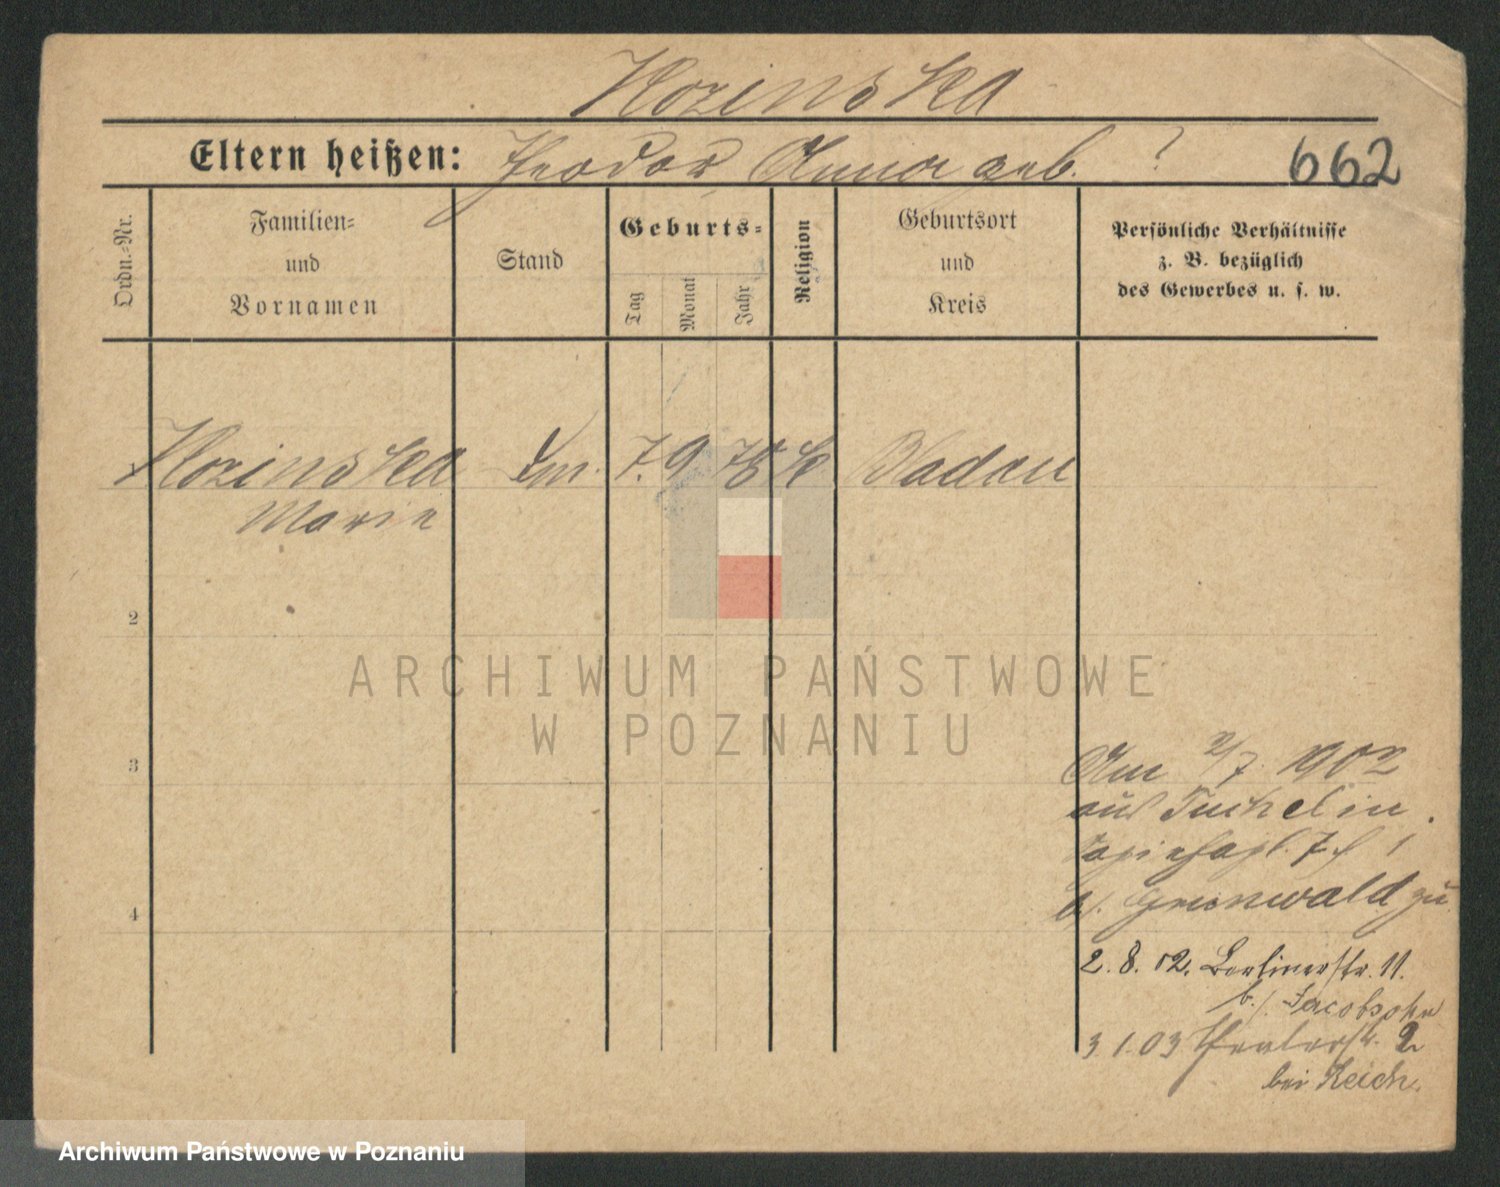 Kozinska
Eltern heißen: Theodor Anna geb. ?
662
Ordn.-Nr.
Familien-
und
Vornamen
Stand
Geburts-
Tag
Monat
Jahr
Religion
Geburtsort
und
Kreis
Persönliche Verhältnisse
z. B. bezüglich
des Gewerbes u. s. w.
Kozinska 7. 9 78 k
Marie
2
3
4
ARCHIWUM PAŃSTWOWE
W POZNANIU
Am 2/7. 1902
aus Tuchel in
b/. Grunwald zu
2. 8. 02. Berlinerstr. 11.
b./. Jacobsohn
3 1. 03 Theaterstr. 2
bei Reich.
Archiwum Państwowe w Poznaniu